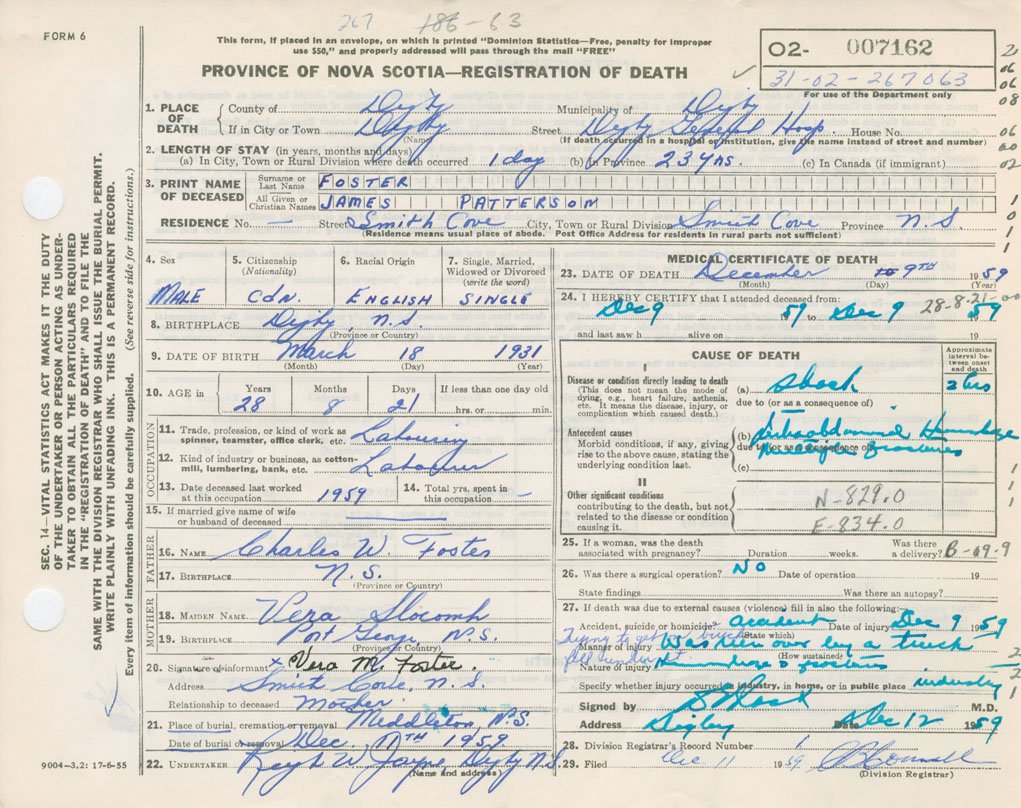 267 186-63
FORM 6
This form, if placed in an envelope, on which is printed "Dominion Statistics—Free, penalty for improper
use $50," and properly addressed will pass through the mail "FREE"
PROVINCE OF NOVA SCOTIA—REGISTRATION OF DEATH
O2- 007162
31-02-267063
For use of the Department only
2
06
06
08
06
00
02
1
0
1
1
SEC. 14—VITAL STATISTICS ACT MAKES IT THE DUTY
OF THE UNDERTAKER OR PERSON ACTING AS UNDER-
TAKER TO OBTAIN ALL THE PARTICULARS REQUIRED
IN THE "REGISTRATION OF DEATH" AND FILE THE
SAME WITH THE DIVISION REGISTRAR WHO SHALL ISSUE THE BURIAL PERMIT.
WRITE PLAINLY WITH UNFADING INK. THIS IS A PERMANENT RECORD.
Every item of information should be carefully supplied. (See reverse side for instructions.)
1. PLACE OF DEATH
County of Digby Municipality of Digby
If in City or Town Digby Street Digby General Hosp. House No.
(Name) (If death occurred in a hospital or institution, give the name instead of street and number)
2. LENGTH OF STAY (in years, months and days)
(a) In City, Town or Rural Division where death occurred 1 day (b) In Province 23 yrs. (c) In Canada (if immigrant)
3. PRINT NAME OF DECEASED
Surname or Last Name FOSTER
All Given or Christian Names JAMES PATTERSON
RESIDENCE No. — Street Smith Cove City, Town or Rural Division Smith Cove Province N.S.
(Residence means usual place of abode. Post Office Address for residents in rural parts not sufficient)
4. Sex 5. Citizenship (Nationality) 6. Racial Origin 7. Single, Married, Widowed or Divorced (write the word)
MALE CDN. ENGLISH SINGLE
8. BIRTHPLACE Digby, N.S.
(Province or Country)
9. DATE OF BIRTH March 18 1931
(Month) (Day) (Year)
10. AGE in Years Months Days If less than one day old
28 8 21 hrs. or min.
OCCUPATION
11. Trade, profession, or kind of work as
spinner, teamster, office clerk, etc. Labouring
12. Kind of industry or business, as cotton-
mill, lumbering, bank, etc. Labourer
13. Date deceased last worked
at this occupation 1959
14. Total yrs. spent in
this occupation –
15. If married give name of wife
or husband of deceased
FATHER
16. NAME Charles W. Foster
17. BIRTHPLACE N.S.
(Province or Country)
MOTHER
18. MAIDEN NAME Vera Slocomb
19. BIRTHPLACE Port George, N.S.
(Province or Country)
20. Signature of informant x Vera M. Foster.
Address Smith Cove, N.S.
Relationship to deceased Mother
21. Place of burial, cremation or removal Middleton N.S.
Date of burial or removal Dec. TH 1959
22. UNDERTAKER W. Jayne, Digby N.S.
(Name and address)
9004-3.2: 17-6-55
MEDICAL CERTIFICATE OF DEATH
23. DATE OF DEATH December 9TH 1959
(Month) (Day) (Year)
24. I HEREBY CERTIFY that I attended deceased from: 28-8-21-00
Dec 9 59 to Dec 9 1959
and last saw h alive on 19
CAUSE OF DEATH
Approximate
interval be-
tween onset
and death
I
Disease or condition directly leading to death
(This does not mean the mode of
dying, e.g., heart failure, asthenia,
etc. It means the disease, injury, or
complication which caused death.)
(a) Shock 2 hrs
due to (or as a consequence of)
Antecedent causes
Morbid conditions, if any, giving
rise to the above cause, stating the
underlying condition last.
(b) Intraabdominal Hemorrhage
due to (or as a consequence of) fractures
(c)
II
Other significant conditions
contributing to the death, but not
related to the disease or condition
causing it.
N-829.0
E-834.0
1
1
25. If a woman, was the death
associated with pregnancy? Duration weeks. Was there
a delivery? B-69-9
26. Was there a surgical operation? NO Date of operation 19
State findings Was there an autopsy?
27. If death was due to external causes (violence) fill in also the following:
Accident, suicide or homicide? accident Date of injury Dec 9 1959
(State which)
Trying to get on truck
fell under it
Manner of injury Was run over by a truck
(How sustained)
Nature of injury Hemorrhage & fractures
Specify whether injury occurred in industry, in home, or in public place industry
2
2
1
Signed by M.D.
Address Digby Date Dec 12 1959
28. Division Registrar's Record Number 1
29. Filed Dec 11 1959
(Division Registrar)